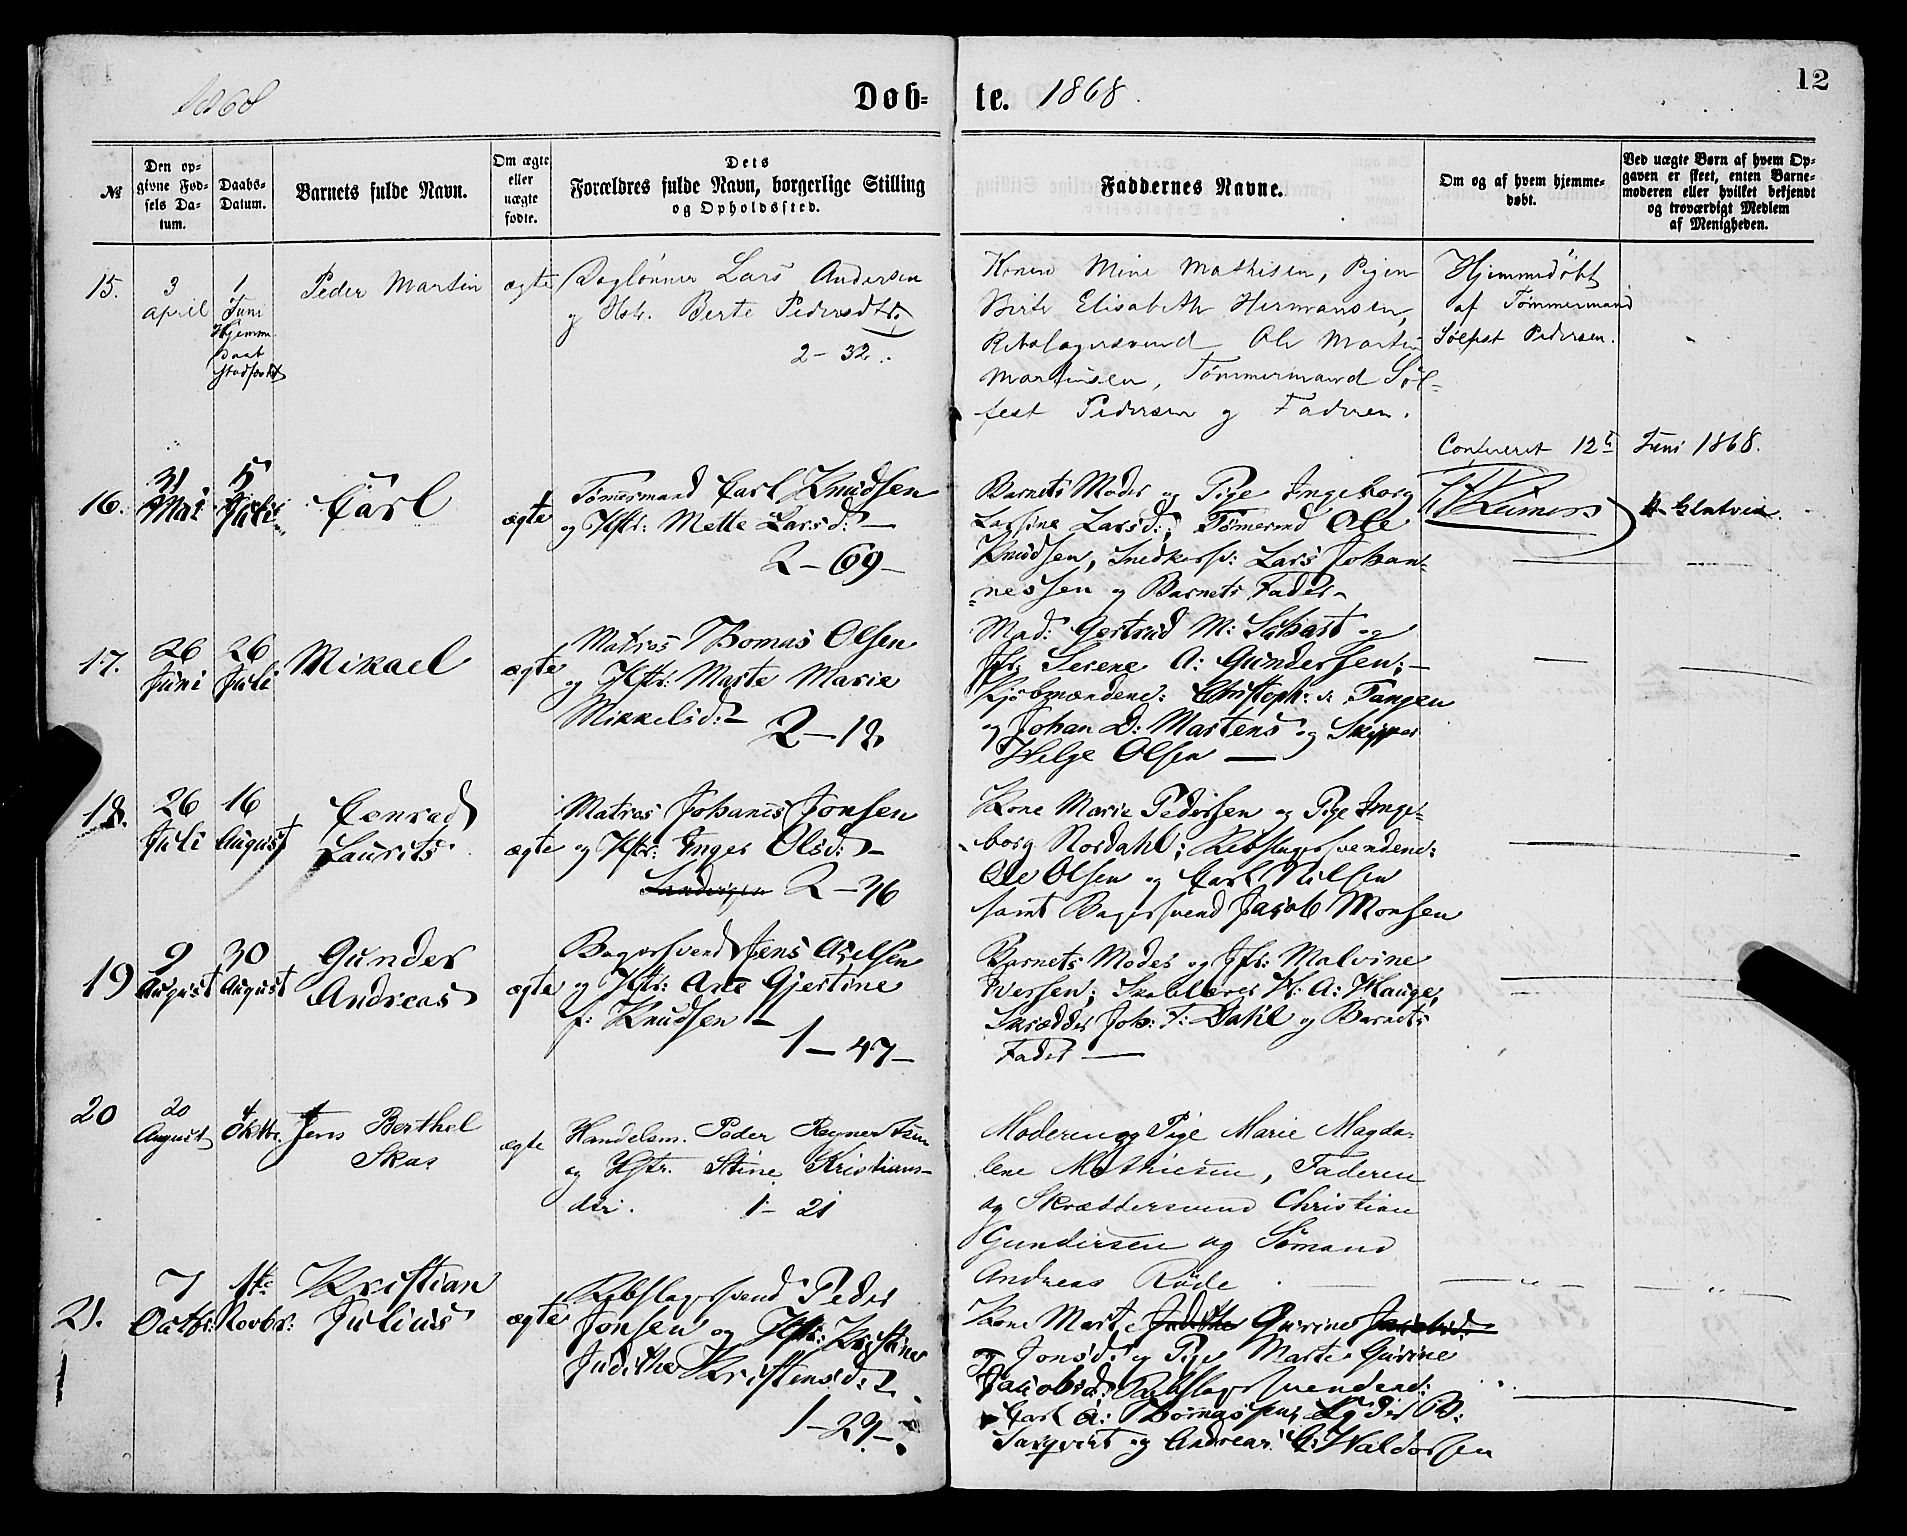 1868
Døb- te. 1868.
12
№
Den op-
givne Fød-
sels Da-
tum.
Daabs-
Datum.
Barnets fulde Navn.
Om ægte
eller
uægte
fødte.
Dets
Forældres fulde Navn, borgerlige Stilling
og Opholdssted.
Faddernes Navne.
Om og af hvem hjemme-
døbt.
Ved uægte Børn af hvem Op-
gaven er skeet, enten Barne-
moderen eller hvilket bekjendt
og troværdigt Medlem
af Menigheden.
15.
3
April
1
Juni
Hjemme
daab
stadfæstet
Peder Martin
ægte
Daglønner Lars Andersen
og Hstr. Berte Pedersdtr.
2-32.
Konen Mine Mathisen, Pigen
Berte Elisabeth Hermansen,
Rebslagersvend Ole Martin
Martinsen, Tømmermand Søl-
fest Pedersen og Faderen.
Hjemmedøbt
af Tømmermand
Sølfest Pedersen.
Confereret 12t Juni 1868.
16.
31
Mai
5
Juli
Carl
ægte
Tømermand Carl Knudsen
og Hstr: Mette Larsd:
2-69-
Barnets Moder og Pige Ingeborg
Larsine Larsd:; Tømermd Ole
Knudsen, Snedkersv: Lars Johan-
=nessen og Barnets Fader
17.
26
Juni
26
Juli
Mikael
ægte
Matros Thomas Olsen
og Hstr: Marte Marie
Mikkelsd:
2-18
Mad: Gertrud M:
Jfr: Serene A: Gundersen;
Kjøbmændene: Christoph: Tangen
og Johan D: Martens og Skipper
Helge Olsen
18.
26
Juli
16
August
Conrad
Laurits
ægte
Matros Johanes Jonsen
og Hstr: Inger Olsd:
2-36
Kone Marie Pedersen og Pige Inge-
borg Nordahl; Rebslagersvendene:
Ole Olsen og Carl Nilsen
samt Bagersvend Jacob Monsen
19
9
August
30
August
Gunder
Andreas
ægte
Bagersvend Jens Axelsen
og Hstr: Ane Gjertine
f: Knudsen
1-47-
Barnets Moder og Jfr: Malvine
Iversen; Skolelærer H: A: Hauge,
Skrædder Joh: F: Dahl og Barnets
Fader
20
20
August
4
Oktbr.
Jens Berthel
Skas
ægte
Handelsm. Peder Regnertsen
og Hstr. Stine Kristians-
dtr. 1-21
Moderen og Pige Marie Magda-
lene Mathiesen, Faderen
og Skræddersvend Christian
Gundersen og Sømand
Andreas Røde
21.
7
Octbr:
1ste
Novbr:
Kristian
Julius
ægte
Rebslagersvend Peder
Jonsen og Hstr: Kristine
Judithe Kristensd:
1-29.-
Kone Marte Judithe Gurine
Jonsd: og Pige Marte Gurine
Jacobsd: Rebslagersvendene:
Carl A: Thomassen, Peder B:
og Andreas C: Haldorsen